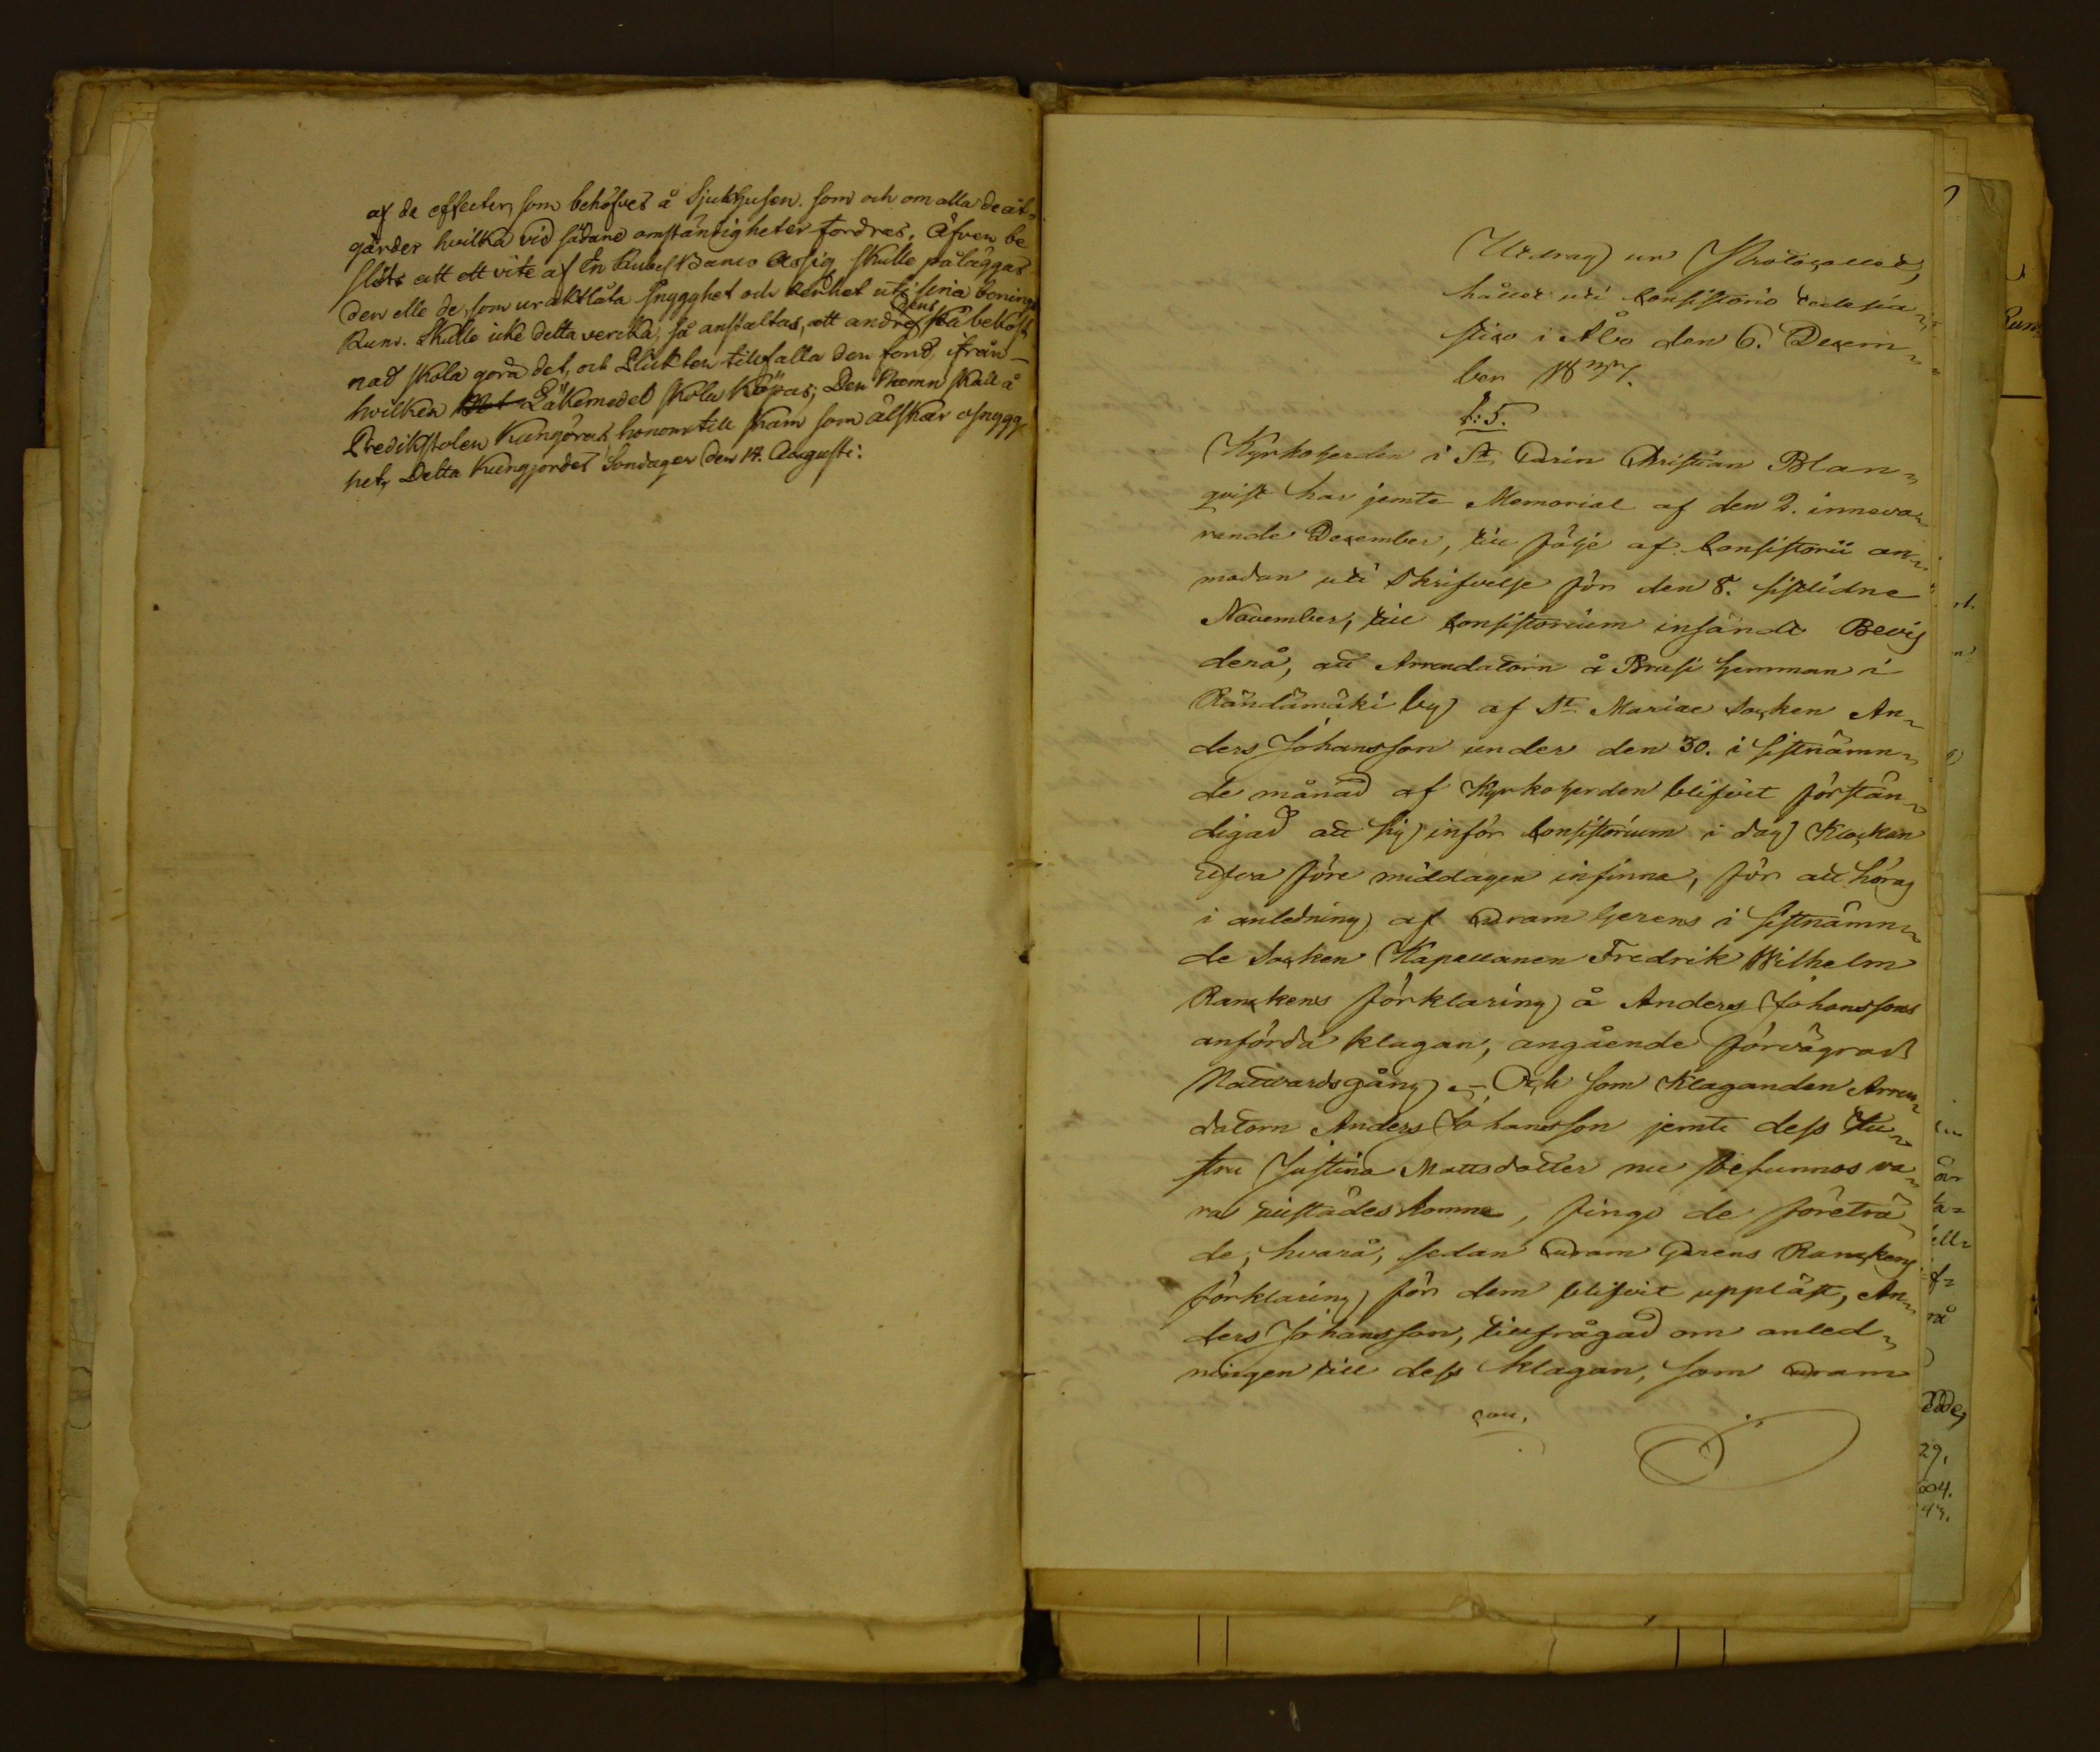 af de effecter, som behöfves å Sjukhusen. som och om alla de åt-
gärder hvilka vid sådane omständigheter fordras. Äfven be
slöts att ett vite af En Rubel Banco Assig skulle påläggas
den elle de, som uraktlåta Snygghet och renhet uti sina bonings
Rum. Skulle icke detta verka, så anstaltas, att andre på dens bekost
nad skola göra det, och Plikten tillfalla den fond, ifrån
hvilken Läkemedel skola Köpas; Den Namn skall å
Predikstolen Kungöras, honom till skam som älskar osnygg
het, Detta Kungjordes Söndagen den 14. Augusti.
Utdrag ur Protocollet,
hållet uti Consistorio Ecclesia-
stico i Åbo den 6. Decem-
ber
§. 5.
Kyrkoherden i St Carin Christian Blan-
qvist har jemte Memorial af den 2. inneva-
rande December, till följe af Consistorii an-
modan uti Skrifvelse för den 8. sistlidne
November, till Consistorium insändt Bevis
derå, att Arrendatorn å Brusi hemman i
Räntämäki by af St Mariae Socken An-
ders Johansson under den 30. i sistnämn-
de månad af Kyrkoherden blifvit förstän-
digad att sig inför Consistorium i dag Klockan
Elfva före middagen infinna, för att höras
i anledning af Adram Herens i sistnämn-
de Socken Kapellanen Fredrik Wilhelm
Ranckens förklaring å Anders Johanssons
anförda klagan, angående förvägrad
Nattvardsgång. – Och som Klaganden Arren-
datorn Anders Johansson jemte dess Hu-
stru Justina Mattsdotter nu befunnos va-
ra tillstädes komne, fingo de företrä-
de, hvarå, sedan Adram Herens Ranckens
förklaring för dem blifvit uppläst, An-
ders Johansson, tillfrågad om anled-
ningen till dess klagan, som Adram